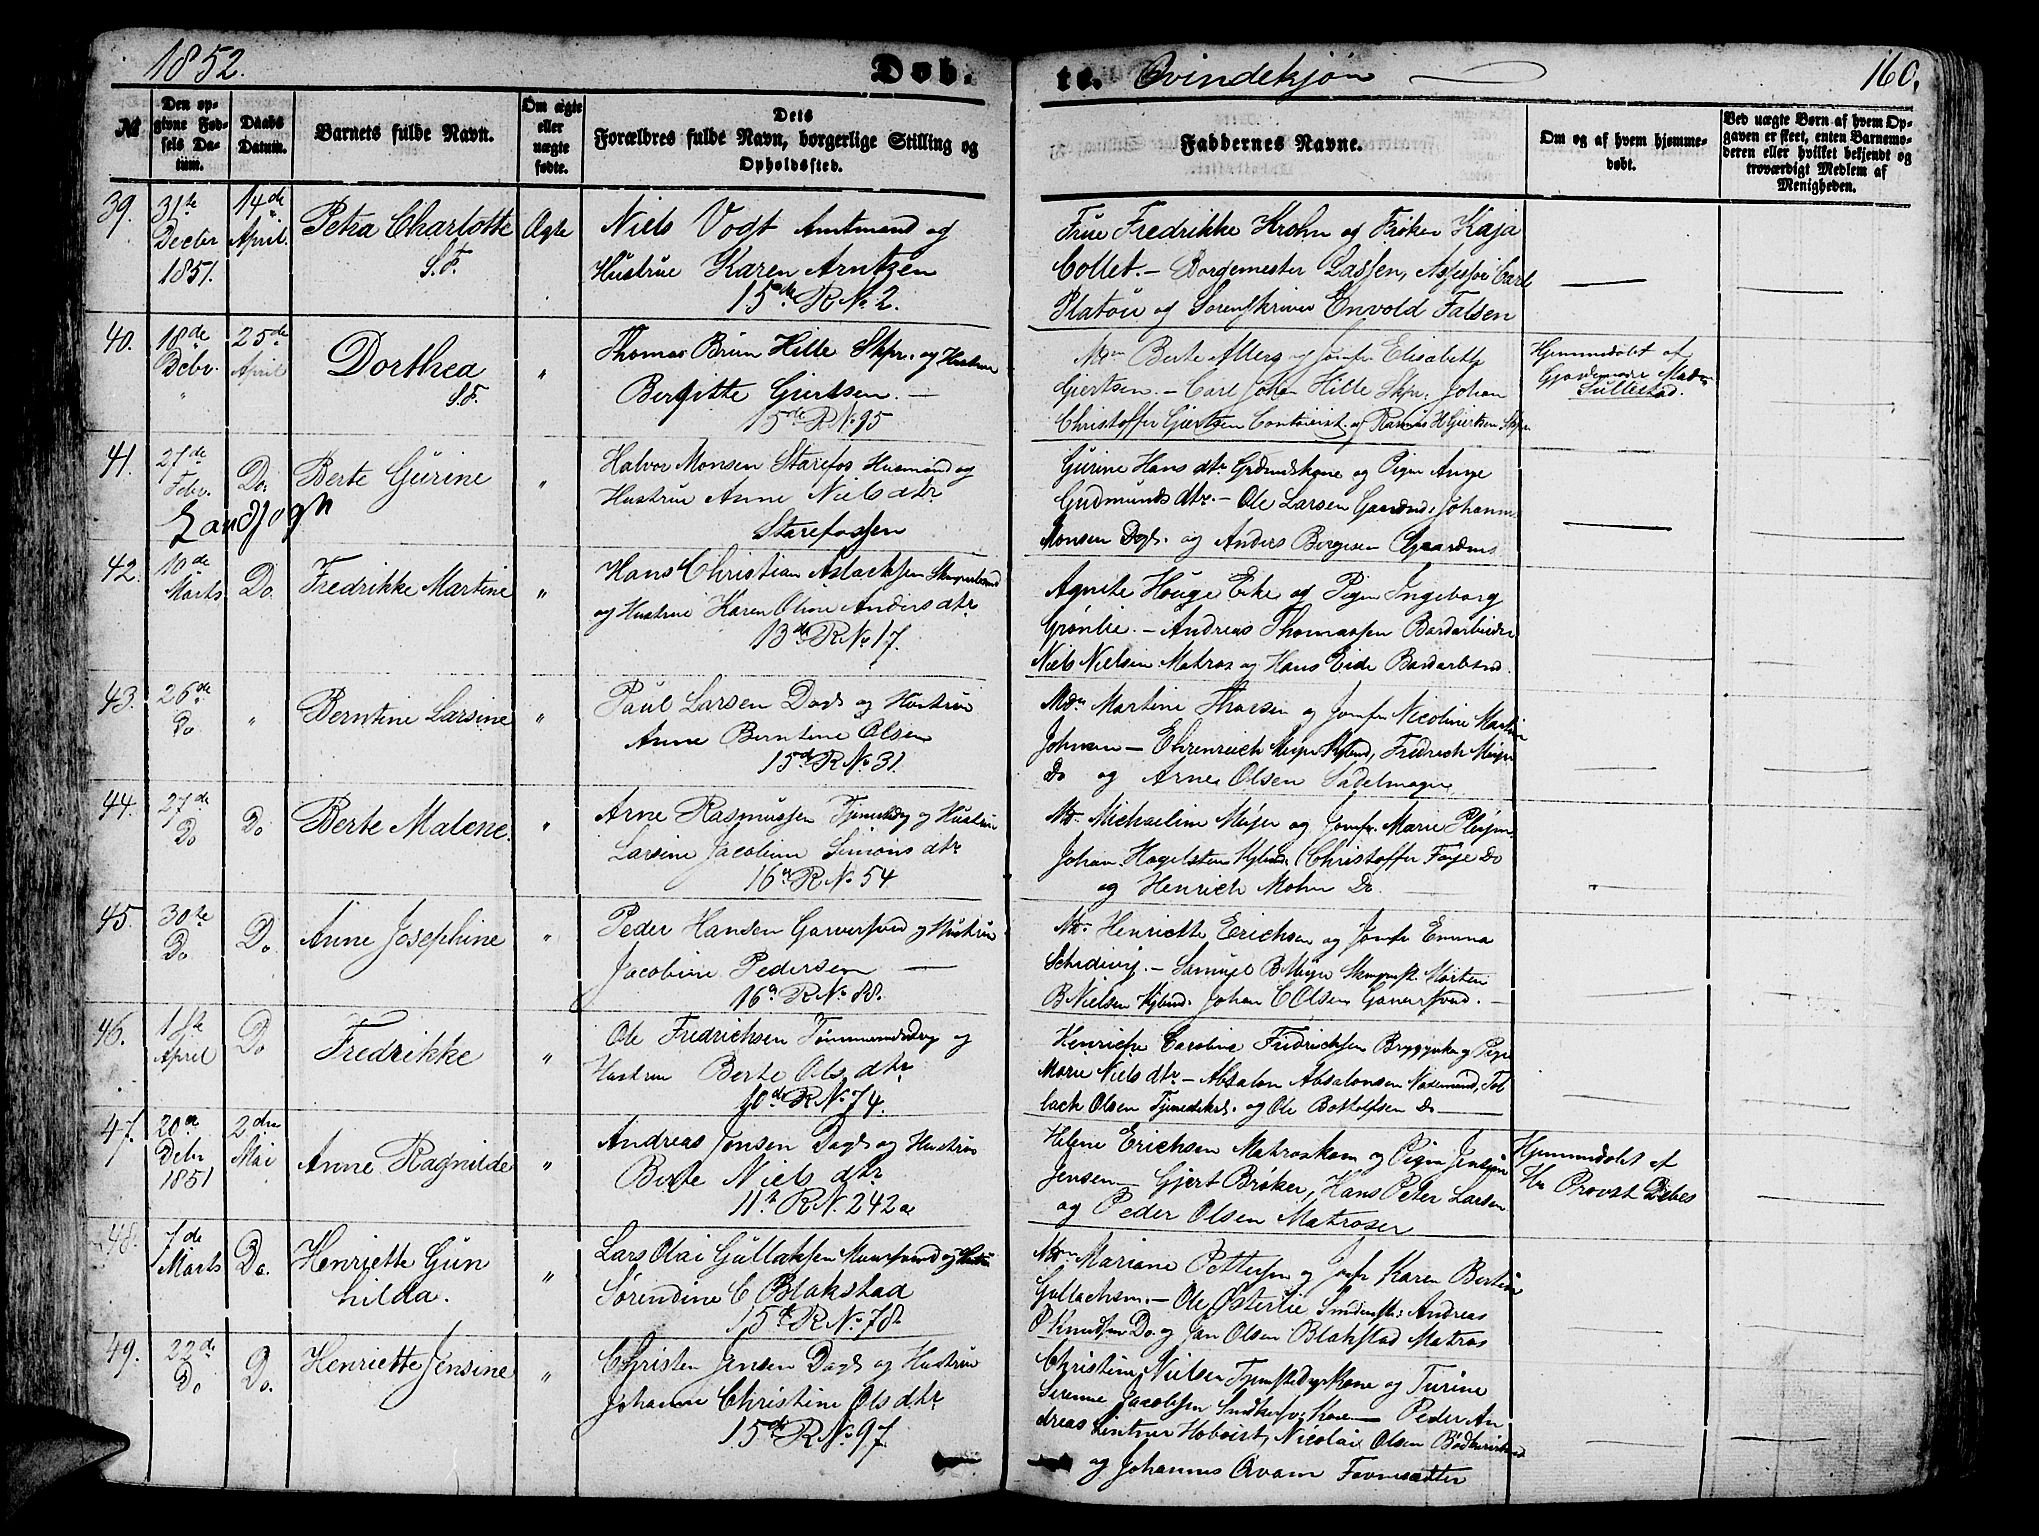 1852.
Døb.
te.
Qvindekjøn
160.
№
Den op-
givne Fød-
sels Da-
tum.
Daabs
Datum.
Barnets fulde Navn.
Om ægte
eller
uægte
fødte.
Dets
Forældres fulde Navn, borgerlige Stilling og
Opholdssted.
Faddernes Navne.
Om og af hvem hjemme-
døbt.
Ved uægte Børn af hvem Op-
gaven er skeet, enten Barnemo-
deren eller hvilket bekjendt og
troværdigt Medlem af
Menigheden.
39.
31te
Decbr
1851.
14de
April.
Petra Charlotte
S.F.
Ægte
Niels Vogt Amtmand og
Hustrue Karen Arntzen
15de R No 2.
Frue Fredrikke Krohn og Frøken Kaja
Collet. – Borgemester Lassen, Assessor Carl
Platou og Sorenskriver Envold Falsen
40.
18de
Febr.
25de
April
Dorthea
S.F.
"
Thomas Bruun Hille Skpr. og Hustrue
Bergitte Giertsen. –
15de R No 95
Mdm Berte Allers og Jomfr Elisabeth
Giertsen. – Carl Johan Hille Skpr. Johan
Christoffer Giertsen Contoirist og Rasmus H Giertsen Skpr
Hjemmedøbt af
Gjordemoder Mad
Sullestad.
41.
27de
Febr.
Do.
Berte Gurine
"
Landsogn
Halvor Monsen Starefos Husmand og
Hustrue Anne Niels dtr
Starefossen
Gurine Hans dtr Grdmdskone og Pigen Ange
Gudmunds dtr. – Ole Larsen Gaardmd: Johannes
Monsen Dagk. og Anders Bergesen Gaardms
42.
16de
Marts
Do.
Fredrikke Martine
"
Hans Christian Aslachsen
og Hustrue Karen Oline Anders dtr
13de R No 17.
Agnete Houge Eke og Pigen Ingeborg
Grønlie. – Andreas Thomassen Bordarbeider
Niels Nielsen Matros og Hans Eide Bordarbeid.
43.
26de
Do
"
Berntine Larsine
"
Paul Larsen Dagk og Hustrue
Anne Berntine Olsen
15de R No 31.
Mdm Martine Thorsen og Jomfr Nicoline Martin
Johnsen – Ehrenreich Meyer Kjbmd, Fredrich Meyer
Do og Arne Olsen Sadelmager
44.
27de
Do
Do
Berte Malene.
"
Arne Rasmussen og Hustrue
Larsine Jacobine Simons dtr
16de R No 54
Mdm Michaeline Meyer og Jomfr. Marie
Johan Hagelsteen Kjbmd, Christoffer Faye Do
og Henrich Mohn Do
45.
30te
Do
Do.
Anne Josephine
"
Peder Hansen Garversvend og Hustrue
Jacobine Pedersen –
16de R No 88.
Mdm Henriette Erichsen og Jomfr Emma
Schedevig. – Samuel B Meyer Morten
B Nielsen Kjbmd. Johan C Olsen Garversvend. –
46.
18te
April
Do
Fredrikke
"
Ole Fredrichsen Tømmermdsdrg og
Hustrue Berte Ols dtr
10de R No 74.
Henriche Caroline Fredrichsen og Pige
Marie Niels dtr – Absalon Absalonsen
lach Olsen og Ole Bottolfsen Do
47.
20de
Debr
1851
2den
Mai
Anne Ragnilde
"
Andreas Jonsen Dagk og Hustrue
Berte Niels dtr
11te R No 242a
Helene Erichsen Matroskone og Pigen
Jensen – Gjert Brøker, Hans Peter Larsen
og Peder Olsen Matroser
Hjemmedøbt af
Hr Provst Debes
48.
7de
Marts
Do.
Henriette Gun
hilda.
"
Lars Olai Gullaksen Muursvend og Hustrue
Sørendine C Blakstad
15de R No 78
Mdm Mariane Pettersen og Jomfr Karen Bertine
Gullachsen. – Ole Østerlie Andreas
O Knudsen Do og Jan Olsen Blakstad Matros
49.
22de
Do
Do.
Henriette Jensine
"
Christen Jensen Dagk og Hustrue
Johanne Christine Ols dtr
15de R No 97
Christine Nielsen Tjenstedrgskone og Turine
Serene Jacobsen Snedkersv. Kone – Peder An
dreas Lintner Hoboist, Nicolai Olsen
og Johannes Qvam